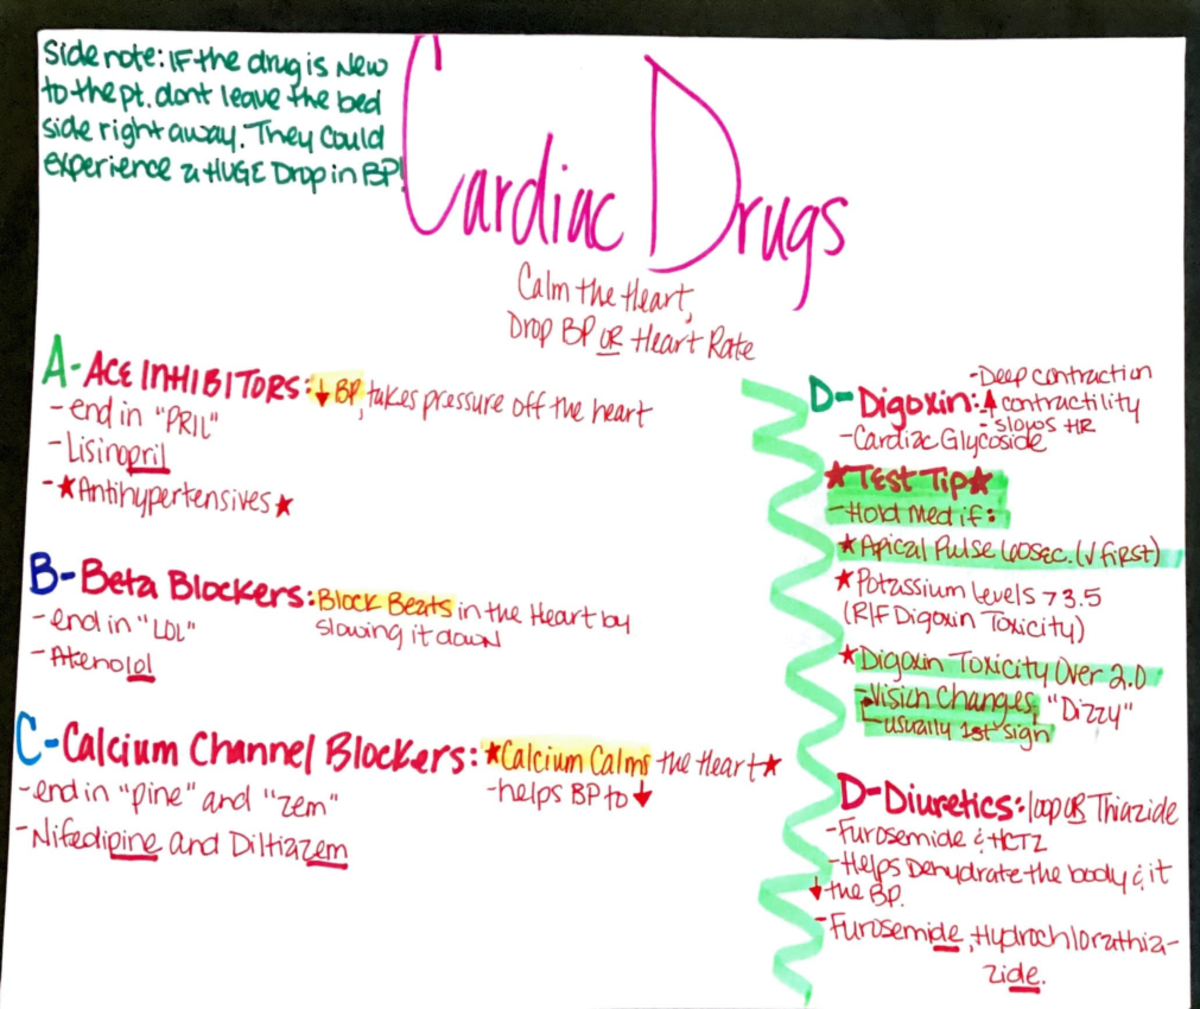 Side note: IF the drug is New
to the pt. dont leave the bed
side right away. They could
experience a HUGE Drop in BP!
Cardiac Drugs
Calm the Heart,
Drop BP OR Heart Rate
A-ACE INHIBITORS: ↓ BP, takes pressure off the heart
- end in "PRIL"
- Lisinopril
- ★Antihypertensives★
B-Beta Blockers: Block Beats in the Heart by
slowing it down
- end in "LOL"
- Atenolol
C-Calcium Channel Blockers: ★Calcium Calms the Heart★
- helps BP to ↓
- end in "pine" and "zem"
- Nifedipine and Diltiazem
- Deep contraction
D-Digoxin: ↑ contractility
- slows HR
- Cardiac Glycoside
★Test Tip★
- Hold Med if:
★Apical Pulse 60sec. (√ first)
★Potassium levels > 3.5
(R/F Digoxin Toxicity)
★Digoxin Toxicity Over 2.0
- Vision Changes, "Dizzy"
usually 1st sign
D-Diuretics: loop OR Thiazide
- Furosemide & HCTZ
- Helps Dehydrate the body & it
↓ the BP.
- Furosemide, Hydrochlorathia-
zide.